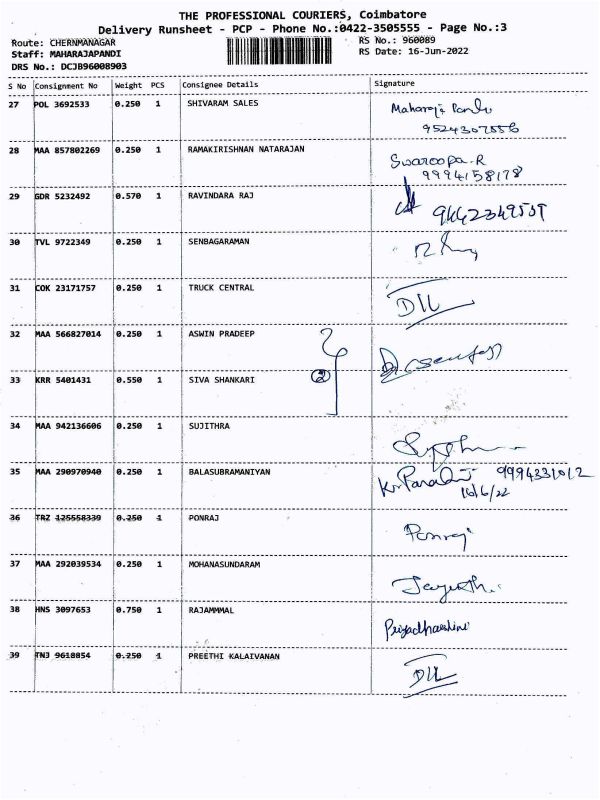 THE PROFESSIONAL COURIERS, Coimbatore
Delivery Runsheet - PCP - Phone No.:0422-3505555 - Page No.:3
Route: CHERNMANAGAR RS No.: 960089
Staff: MAHARAJAPANDI RS Date: 16-Jun-2022
DRS No.: DCJB96008903
S No Consignment No Weight PCS Consignee Details Signature
27 POL 3692533 0.250 1 SHIVARAM SALES Maharaja Pandi
9524307556
28 MAA 857802269 0.250 1 RAMAKIRISHNAN NATARAJAN Swaroopa.R
9994158178
29 GDR 5232492 0.570 1 RAVINDARA RAJ 9442349559
30 TVL 9722349 0.250 1 SENBAGARAMAN
31 COK 23171757 0.250 1 TRUCK CENTRAL
32 MAA 566827014 0.250 1 ASWIN PRADEEP
33 KRR 5401431 0.550 1 SIVA SHANKARI 2
34 MAA 942136606 0.250 1 SUJITHRA
35 MAA 290970940 0.250 1 BALASUBRAMANIYAN 9994331012
16/6/22
36 TRZ 125558339 0.250 1 PONRAJ Ponraj
37 MAA 292039534 0.250 1 MOHANASUNDARAM
38 HNS 3097653 0.750 1 RAJAMMMAL Priyadharshini
39 TNJ 9618854 0.250 1 PREETHI KALAIVANAN